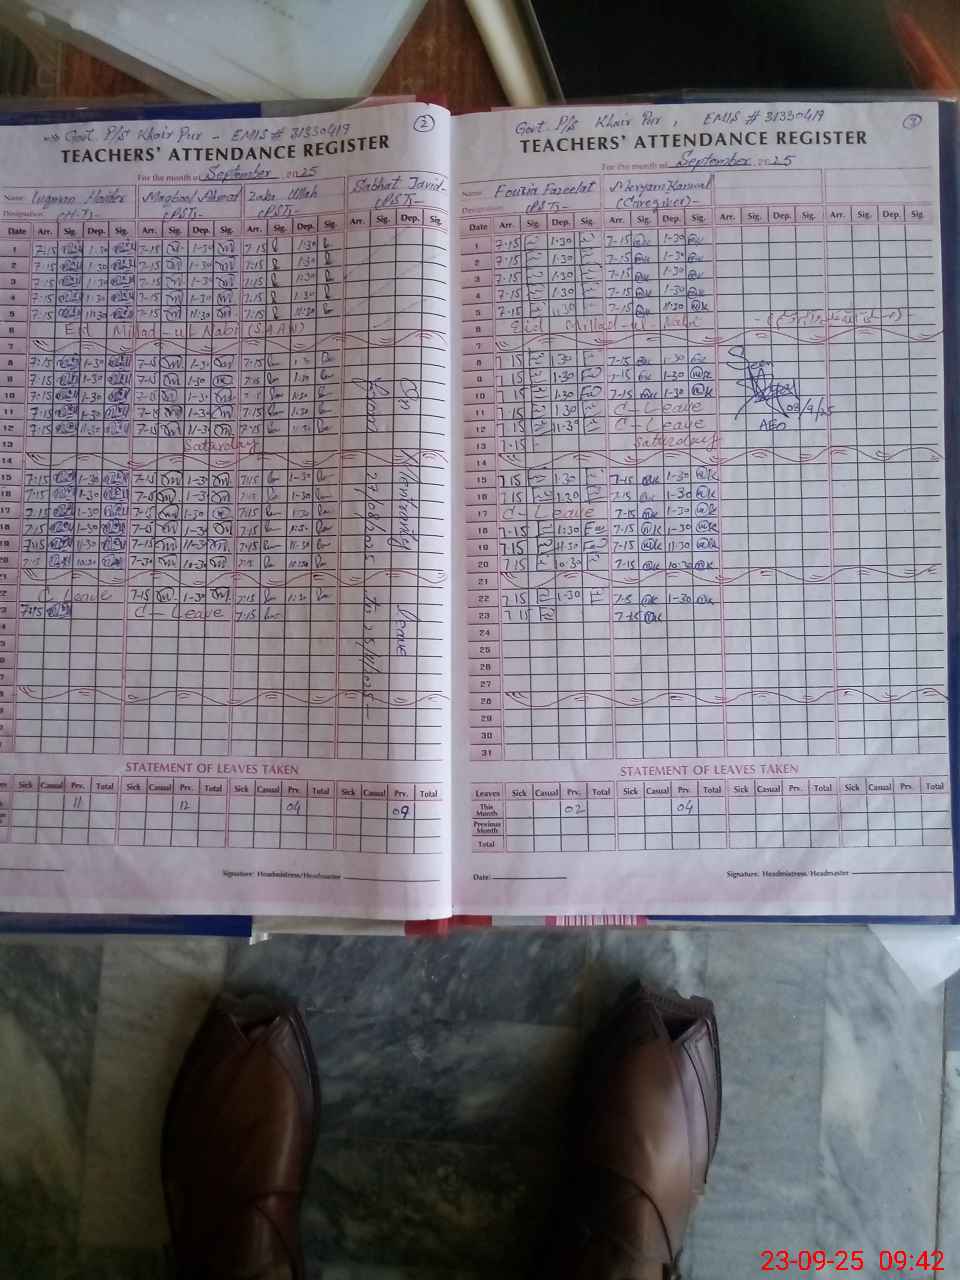 Govt. P/S Khair Pur - EMIS # 31330419
2
TEACHERS' ATTENDANCE REGISTER
For the month of September 2025
Name: Luqman Haider Maqbool Ahmad Zaka Ullah Sabhat Javid
Designation (PST) (PST) (PST)
Date Arr. Sig. Dep. Sig. Arr. Sig. Dep. Sig. Arr. Sig. Dep. Sig. Arr. Sig. Dep. Sig.
1 7:15 1:30 7-15 1-30 7:15 1:30
2 7:15 1:30 7-15 1-30 7:15 1:30
3 7:15 1:30 7-15 1-30 7:15 1:30
4 7:15 1:30 7-15 1-30 7:15 1:30
5 7:15 11:30 7-15 11:30 7:15 11:30
6 Eid Milad-ul-Nabi (S.A.A.W)
7
8 7:15 1-30 7-15 1-30 7:15 1:30
9 7:15 1-30 7-15 1-30 7:15 1:30
10 7:15 1-30 7-15 1-30 7:15 1:30
11 7:15 1-30 7-15 1-30 7:15 1:30
12 7:15 11-30 7-15 11-30 7:15 11:30
13 Saturday
14
15 7:15 1-30 7-15 1-30 7:15 1-30
16 7:15 1-30 7-15 1-30 7:15 1-30
17 7:15 1-30 7-15 1-30 7:15 1:30
18 7:15 1-30 7-15 1-30 7:15 1:30
19 7:15 11-30 7-15 11-30 7:15 11-30
20 7:15 10:30 10-30 7:15 10:30
21
22 C-Leave 7-15 1-30 7:15 1:30
23 7:15 C-Leave 7:15
On Maternity Leave
From 27/08/2025 to 25/11/025
STATEMENT OF LEAVES TAKEN
Sick Casual Prv. Total Sick Casual Prv. Total Sick Casual Prv. Total Sick Casual Prv. Total
11 12 04 09
Signature: Headmistress/Headmaster
Govt. P/S Khair Pur, EMIS # 31330419
3
TEACHERS' ATTENDANCE REGISTER
For the month of September 2025
Name: Fouzia Fazeelat Meryam Kanwal
Designation (PST) (Caregiver)
Date Arr. Sig. Dep. Sig. Arr. Sig. Dep. Sig. Arr. Sig. Dep. Sig. Arr. Sig. Dep. Sig.
1 7-15 1-30 7-15 1-30
2 7-15 1:30 7-15 1-30
3 7-15 1:30 7-15 1:30
4 7-15 1:30 7-15 1:30
5 7-15 11:30 7-15 11:30
6 Eid Millad-ul-Nabi
7
8 7 15 1:30 7-15 1-30
9 7 15 1:30 7-15 1-30
10 7 15 1:30 7-15 1-30
11 7 15 1:30 C-Leave
12 7 15 11-30 C-Leave
13 7-15 Saturday
14
Seen
09/25
AEO
15 7 15 1:30 7-15 1-30
16 7 15 1:30 7-15 1-30
17 C-Leave 7-15 1-30
18 7-15 1:30 7-15 1-30
19 7-15 11:30 7-15 11:30
20 7-15 10:30 7-15 10:30
21
22 7-15 1-30 7-15 1-30
23 7 15 7-15
24
25
26
27
28
29
30
31
STATEMENT OF LEAVES TAKEN
Leaves Sick Casual Prv. Total Sick Casual Prv. Total Sick Casual Prv. Total Sick Casual Prv. Total
This Month 02 04
Previous Month
Total
Date:
Signature: Headmistress/Headmaster
23-09-25 09:42